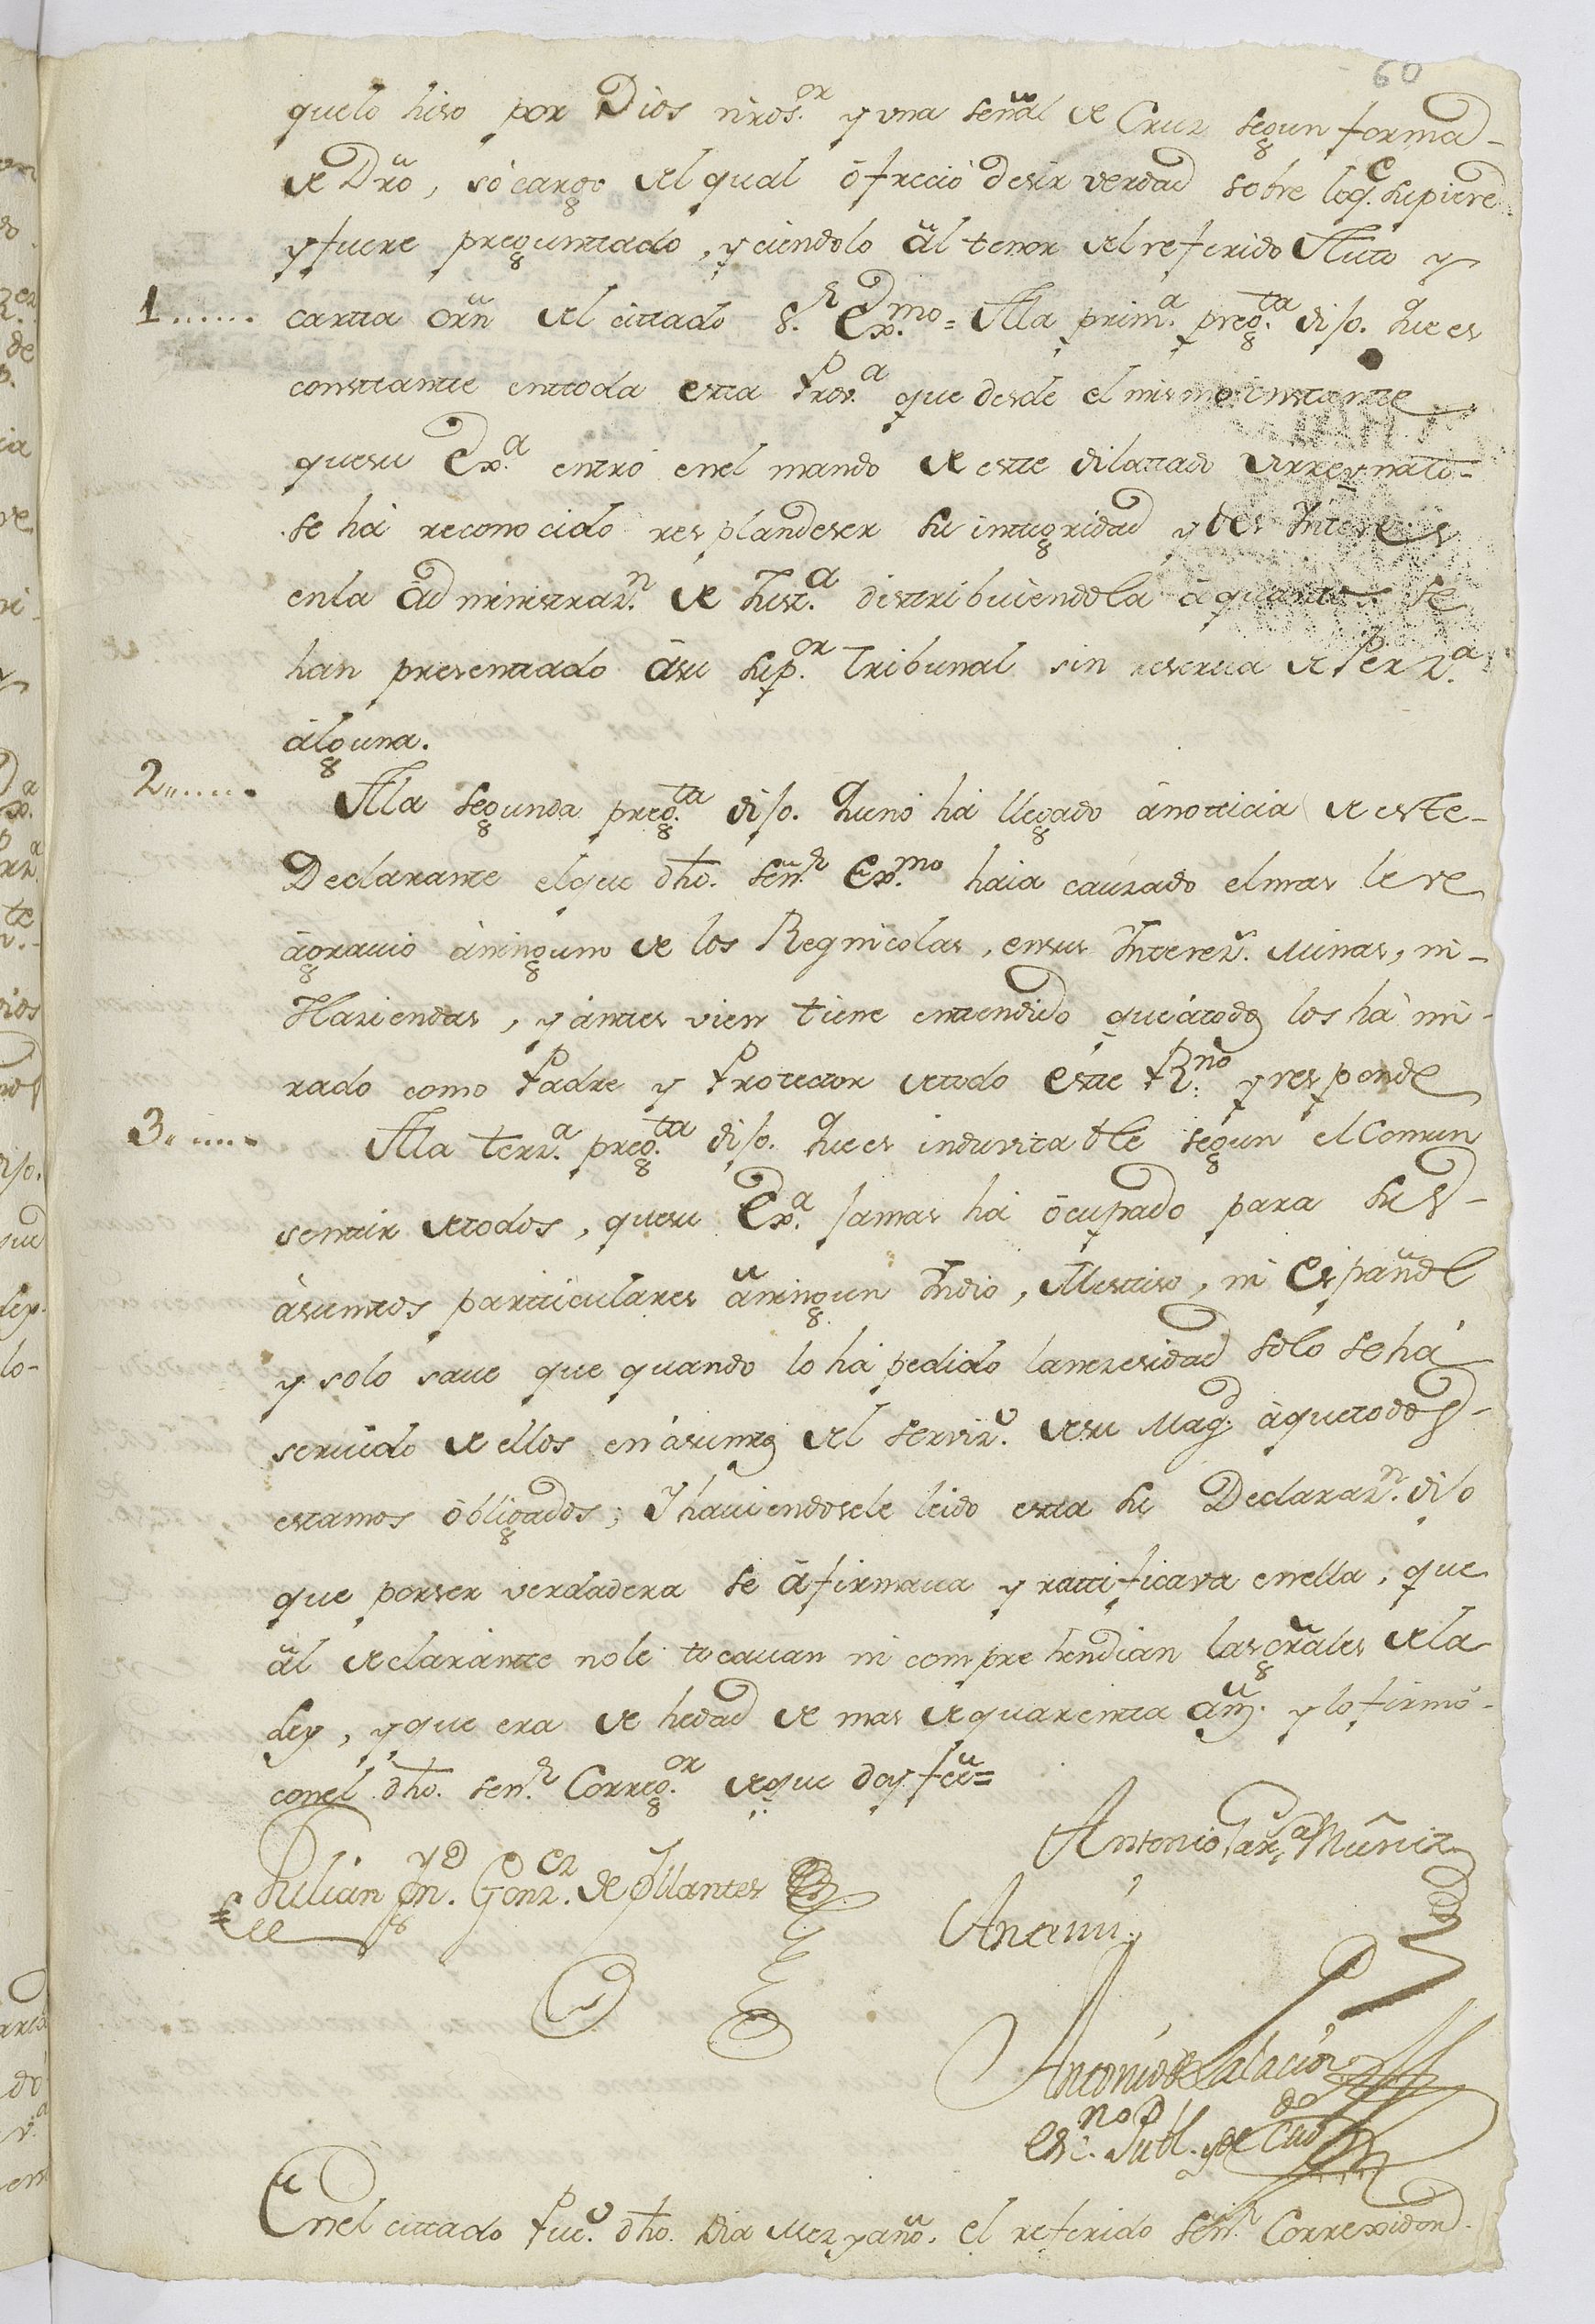 60
quelo hiso por Dios nrōs.or y vna señal de Cruz segun forma-
de Dro, sò cargo del qual òfreciò desir verdad sobre loq.e supiere
y fuere preguntado, y ciendolo àl tenor del referido Auto y
1...... cartta orn del cittado S.r Ex.mo = Ala prim.a preg.ta dijo. Que es
constante enttoda esta Prov.a que desde el mismo instante
quesu Ex.a entrò enel mando de este dilattado virreynato-
se hà reconocido resplandeser su integridad y desInteres
enla àdministraz.n de Just.a distribuiendola àquantos se
han presentado àsu sup.or Tribunal sin reserva de Perz.a
àlguna.
2...... Ala segunda preg.ta dijo. Quenò hà llegado ànotticia de este-
Declarante elque dho. señ.r Ex.mo haia caùzado elmas leve
àgravio àninguno de los Regnicolas, ensus Interez.s Minas, ni-
Haziendas, yàntes vien tiene enttendido queàtodos los hà mi-
rado como Padre y Protector detodo este R.no yresponde
3...... Ala terz.a preg.ta dijo. Que es induvitable segun elComun
senttir detodos, quesu Ex.a jamas hà òcupado para sus-
àsuntos particulares àningun Indio, Mestiso, ni Español
y solo save que quando lo hà pedido lanezesidad solo sehà
servido de ellos en àsuntos del serviz.o desu Mag.d àquetodos-
estamos òbligados; Y haviendosele leido esta su Declaraz.n dijo
que porser verdadera se àfirmava y rattificava enella, que
àl declarante nole tocavan ni comprehendian las grales dela
Ley, yque era de hedad de mas dequarenta añ.s y lo firmò-
conel dho. señ.r Correg.or deque doy feè=
Antonio Garz.a Muñiz
Julian Gonz.ez de Collantes
Antemi
Antonio de Palacios
Esc.no Pub.co y de Cav.do
Enel cittado Pue.o dho. Dia Mez y año. el referido señ.r Correxidor